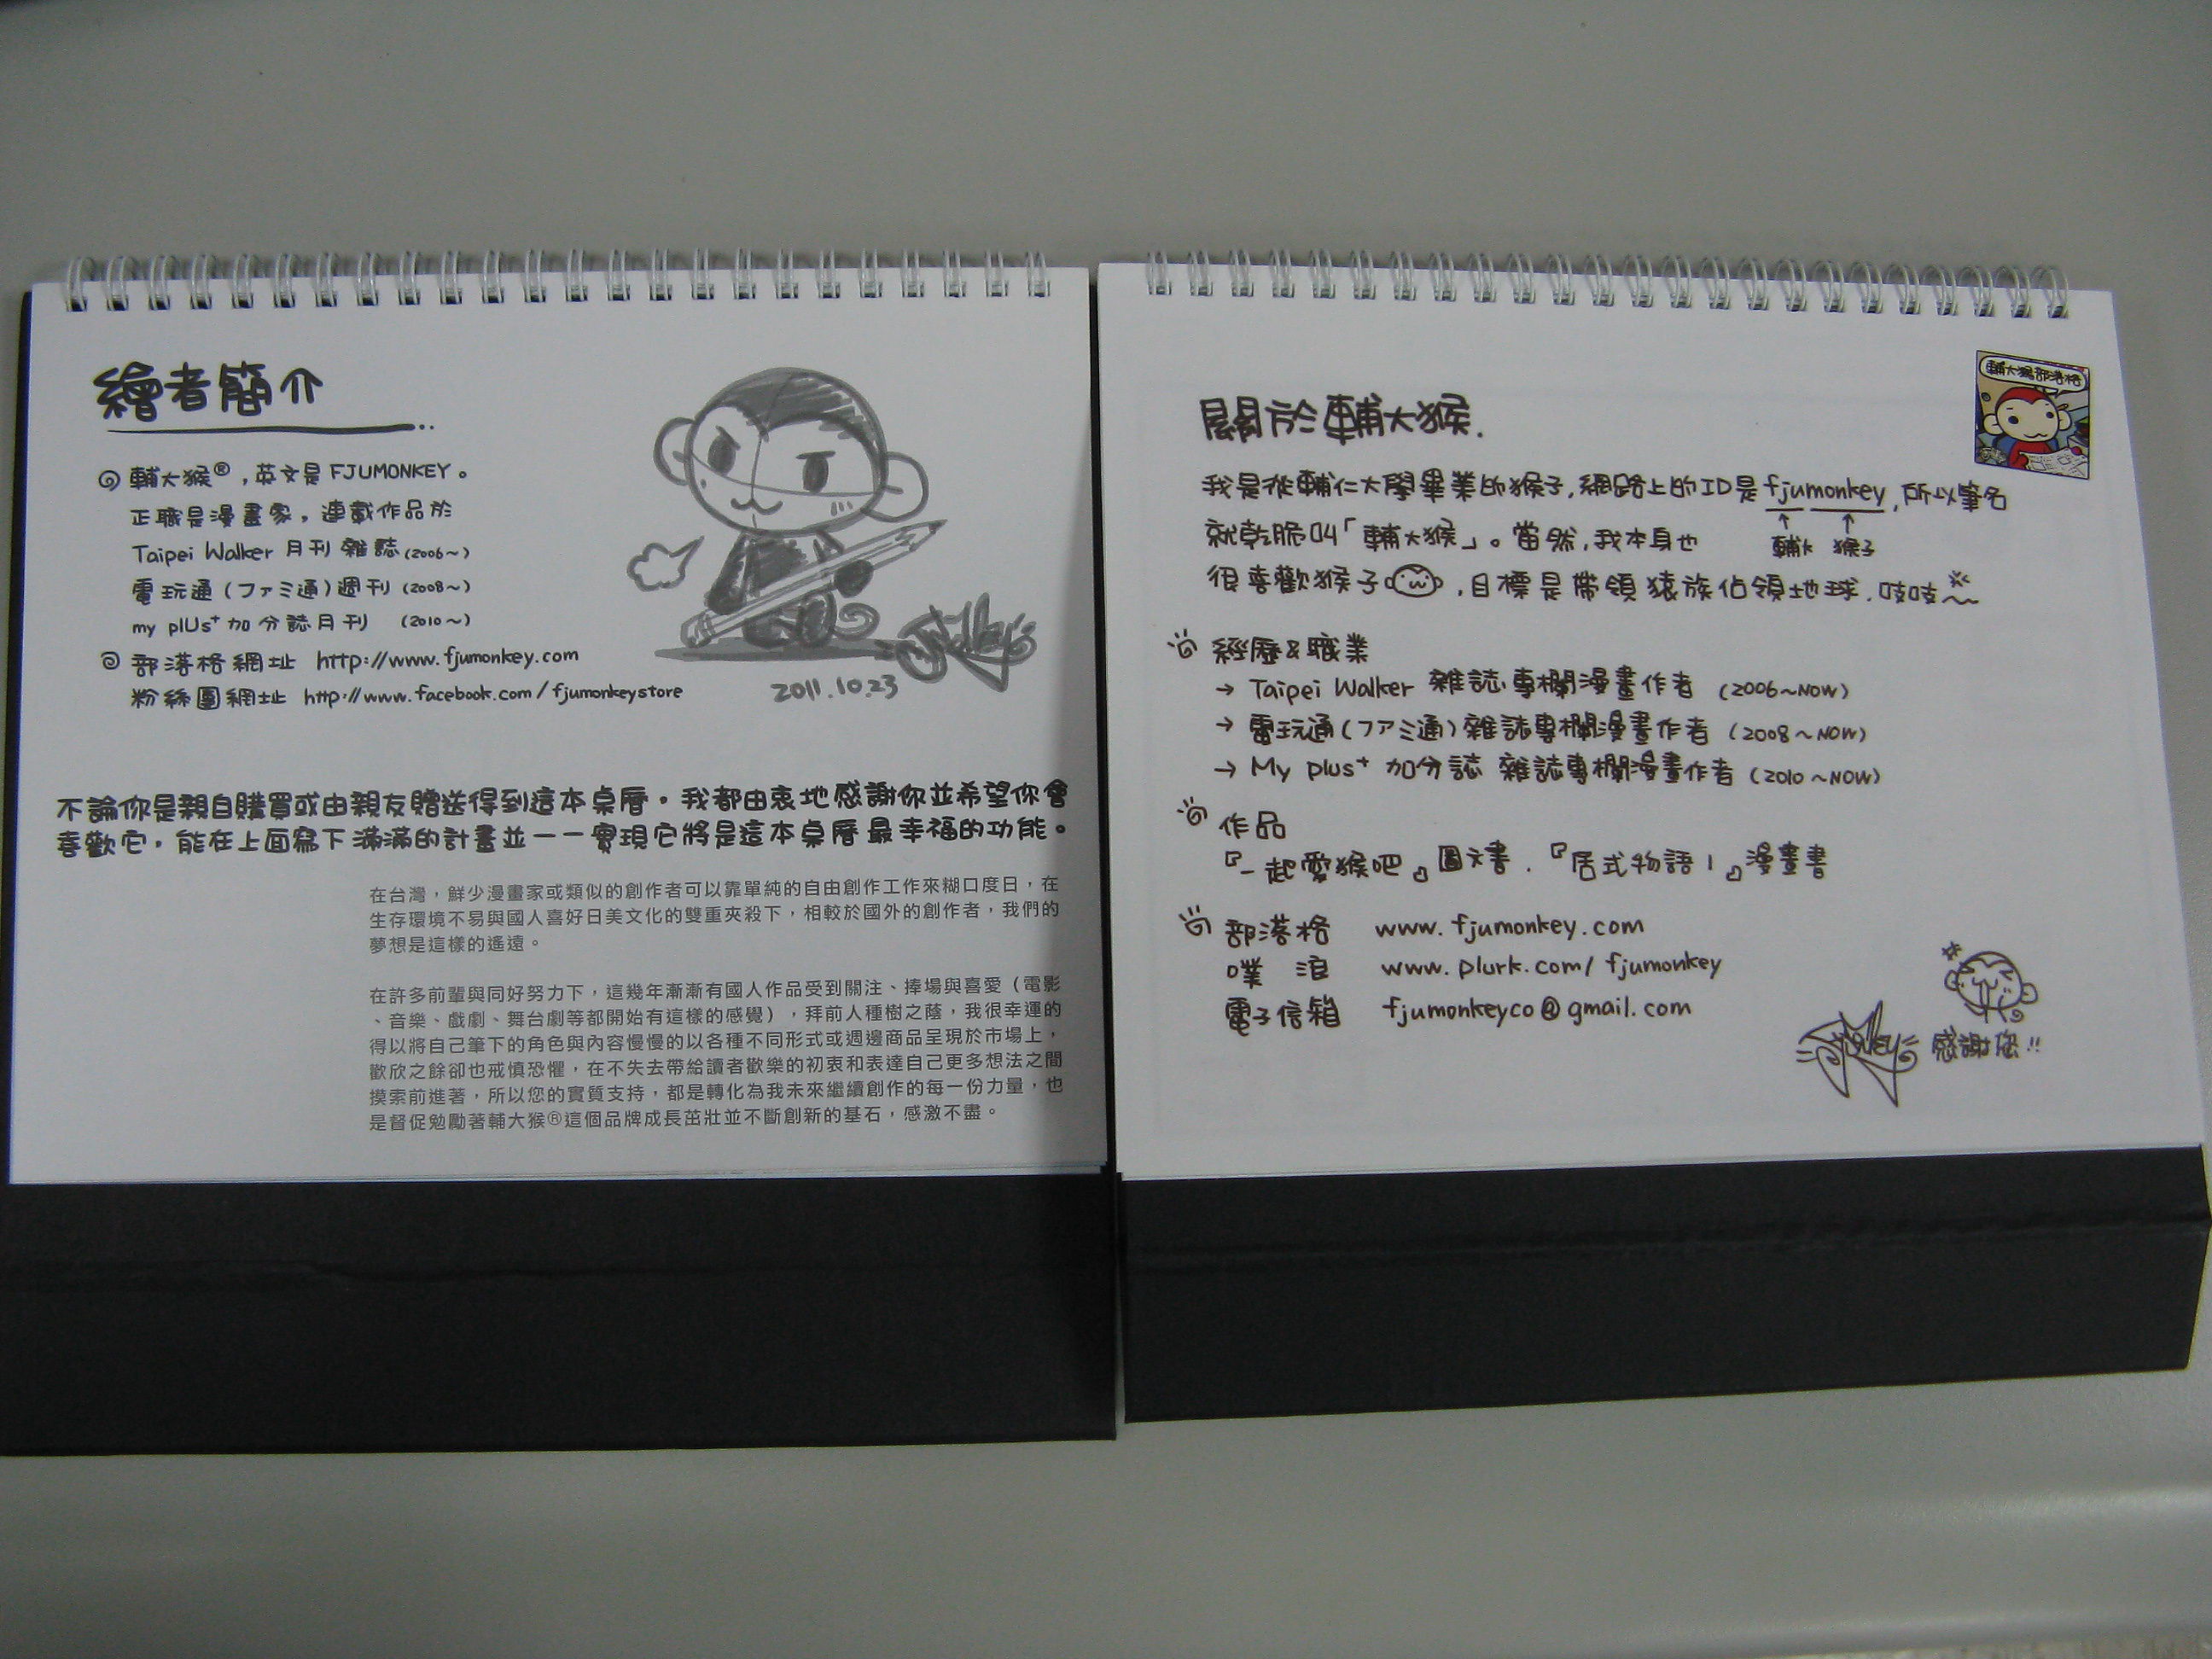 繪者簡介
輔大猴®，英文是 FJUMONKEY。
正職是漫畫家，連載作品於
Taipei Walker 月刊 雜誌 (2006~)
電玩通 (ファミ通) 週刊 (2008~)
my plUs+ 加分誌月刊 (2010~)
部落格網址 http://www.fjumonkey.com
粉絲團網址 http://www.facebook.com/fjumonkeystore
2011.10.23
不論你是親自購買或由親友贈送得到這本桌曆，我都由衷地感謝你並希望你會
喜歡它，能在上面寫下滿滿的計畫並一一實現它將是這本桌曆最幸福的功能。
在台灣，鮮少漫畫家或類似的創作者可以靠單純的自由創作工作來糊口度日，在
生存環境不易與國人喜好日美文化的雙重夾殺下，相較於國外的創作者，我們的
夢想是這樣的遙遠。
在許多前輩與同好努力下，這幾年漸漸有國人作品受到關注、捧場與喜愛（電影
、音樂、戲劇、舞台劇等都開始有這樣的感覺），拜前人種樹之蔭，我很幸運的
得以將自己筆下的角色與內容慢慢的以各種不同形式或週邊商品呈現於市場上，
歡欣之餘卻也戒慎恐懼，在不失去帶給讀者歡樂的初衷和表達自己更多想法之間
摸索前進著，所以您的實質支持，都是轉化為我未來繼續創作的每一份力量，也
是督促勉勵著輔大猴®這個品牌成長茁壯並不斷創新的基石，感激不盡。
輔大猴部落格
關於輔大猴.
我是從輔仁大學畢業的猴子，網路上的ID是 fjumonkey，所以筆名
就乾脆叫「輔大猴」。當然，我本身也
輔大 猴子
很喜歡猴子，目標是帶領猿族佔領地球，吱吱~
經歷&職業
→ Taipei Walker 雜誌專欄漫畫作者 (2006~NOW)
→ 電玩通 (ファミ通) 雜誌專欄漫畫作者 (2008~NOW)
→ My plus+ 加分誌 雜誌專欄漫畫作者 (2010~NOW)
作品
『一起愛猴吧』圖文書．『居式物語1』漫畫書
部落格 www.fjumonkey.com
噗浪 www.plurk.com/fjumonkey
電子信箱 fjumonkeyco@gmail.com
感謝您!!